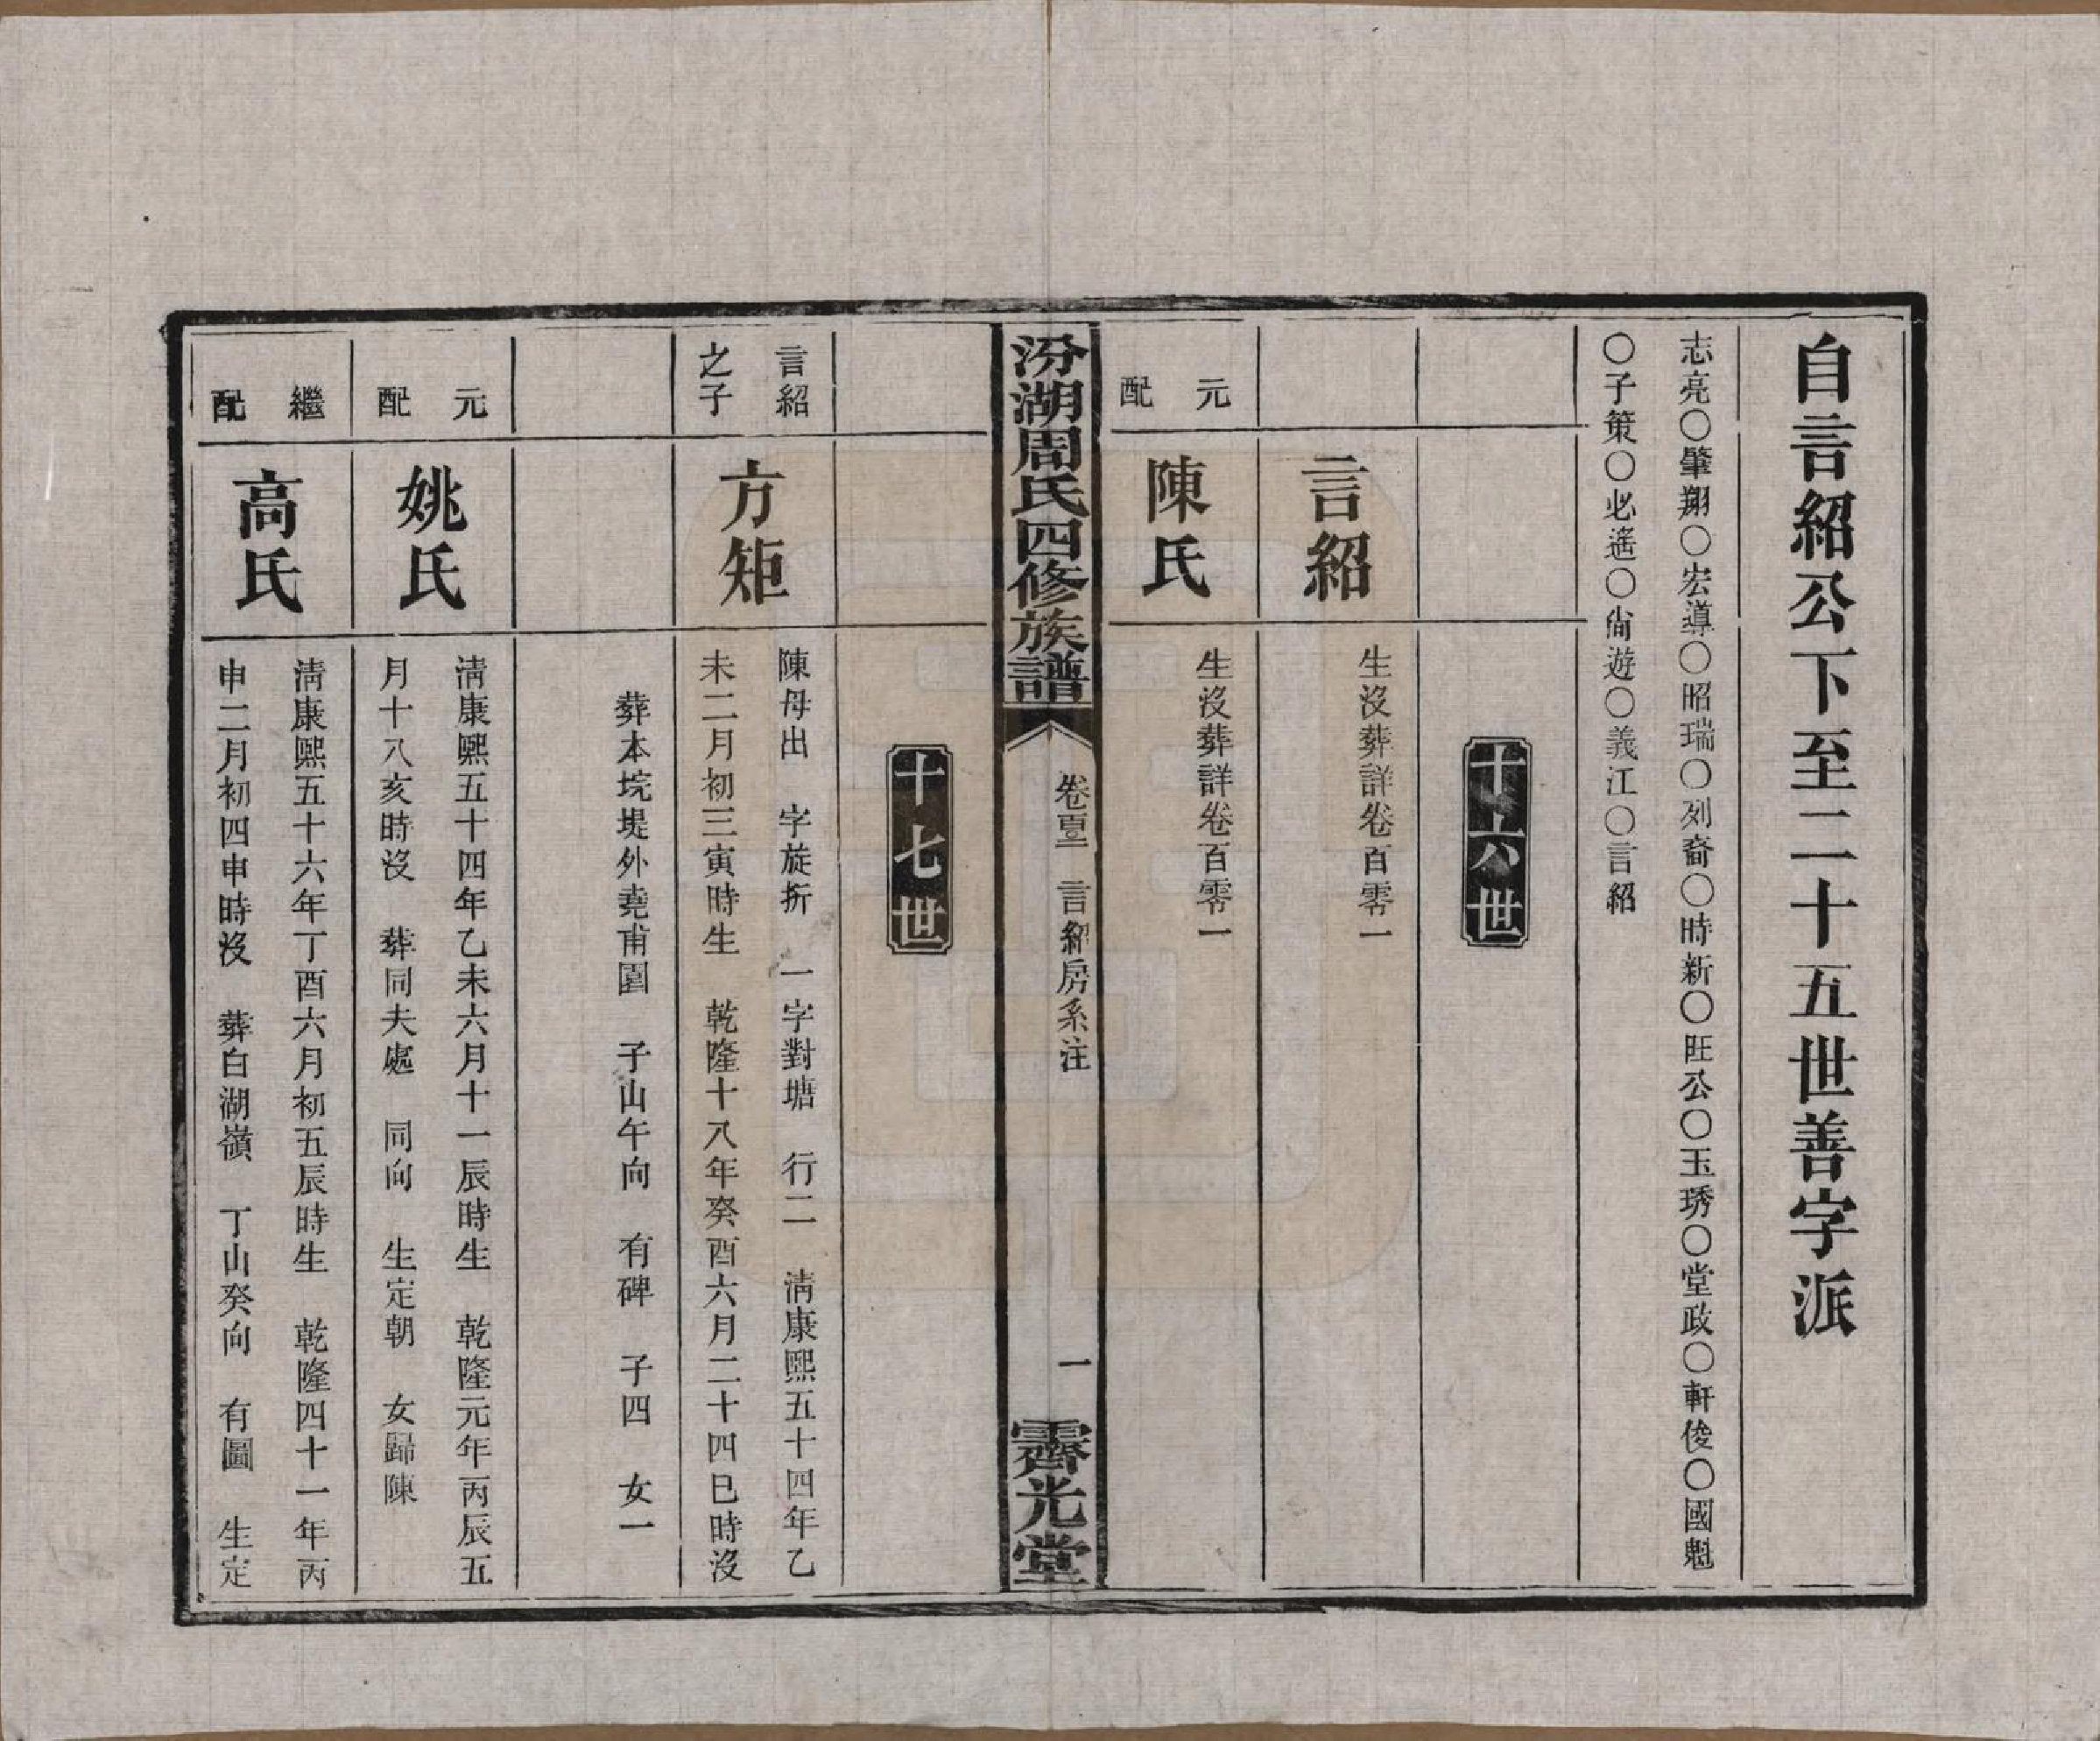 自言紹公下至二十五世善字派
志亮〇肇翔〇宏導〇昭瑞〇列裔〇時新〇旺公〇玉琇〇堂政〇軒俊〇國魁
〇子策〇必遙〇尙遊〇義江〇言紹
十六世
言紹
生沒葬詳卷百零一
元
配
陳氏
生沒葬詳卷百零一
汾湖周氏四修族譜
言紹房系注
一
霽光堂
十七世
言紹
之子
方矩
陳母出 字旋折 一字對塘 行二 淸康熙五十四年乙
未二月初三寅時生 乾隆十八年癸酉六月二十四巳時沒
葬本垸堤外堯甫園 子山午向 有碑 子四 女一
元
配
姚氏
淸康熙五十四年乙未六月十一辰時生 乾隆元年丙辰五
月十八亥時沒 葬同夫處 同向 生定朝 女歸陳
繼
配
高氏
淸康熙五十六年丁酉六月初五辰時生 乾隆四十一年丙
申二月初四申時沒 葬白湖嶺 丁山癸向 有圖 生定